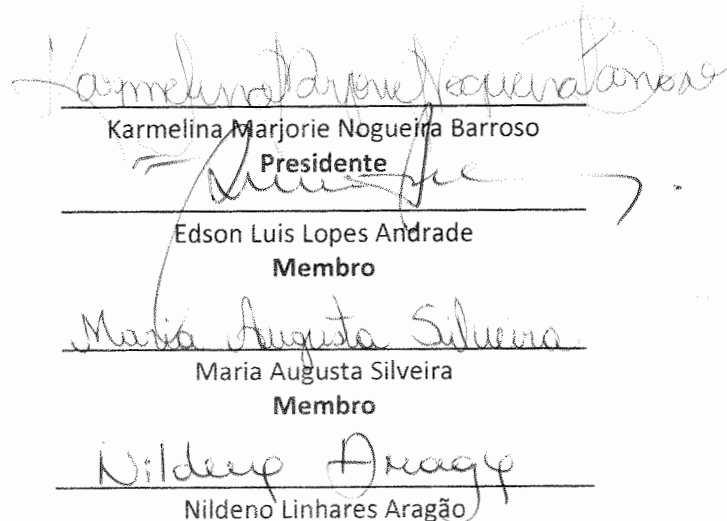 Karmelina Marjorie Nogueira Barroso
Karmelina Marjorie Nogueira Barroso
Presidente
Edson Luis Lopes Andrade
Membro
Maria Augusta Silveira
Maria Augusta Silveira
Membro
Nildeno Aragão
Nildeno Linhares Aragão